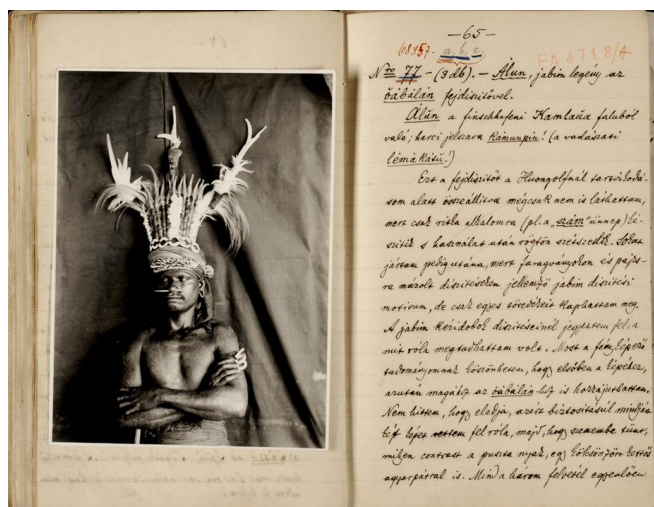 —65—
68.157. a, b, c.
Nro 77 – (3 db). – Álun, jabim legény az
õábàlán fejdíszítővel.
Álun a finschhafeni Kamlaua faluból
való; harci jelszava Kámunpin! (a vadászati
lēmákátú!)
Ezt a fejdíszítőt a Huongolfnál tartózkodá-
som alatt összeállítva mégcsak nem is láthattam,
mert csak ritka alkalomra (pl. a „szám" ünnep) ké-
szítik s használat után rögtön szétszedik. Sokat
jártam pedig utána, mert faragványokon és pajzs-
ra mázolt díszítéseken jellemző jabim díszítési
motivum, de csak egyes töredékeit kaphattam meg.
A jabim kézidobok díszítéseinél jegyeztem fel, a
mit róla megtudhattam volt. Most a fényképező
tudományomnak köszönhetem, hogy elsőben a képéhez,
azután magához az õábàlán-hoz is hozzájuthattam.
Nem hittem, hogy eladja, azért biztosításul mindjárt
két képet vettem fel róla, majd, hogy szemembe tünt,
milyen contrast a puszta nyak, egy kölcsönzött kettős
agyarpárral is. Mind a három felvétel egyenlően